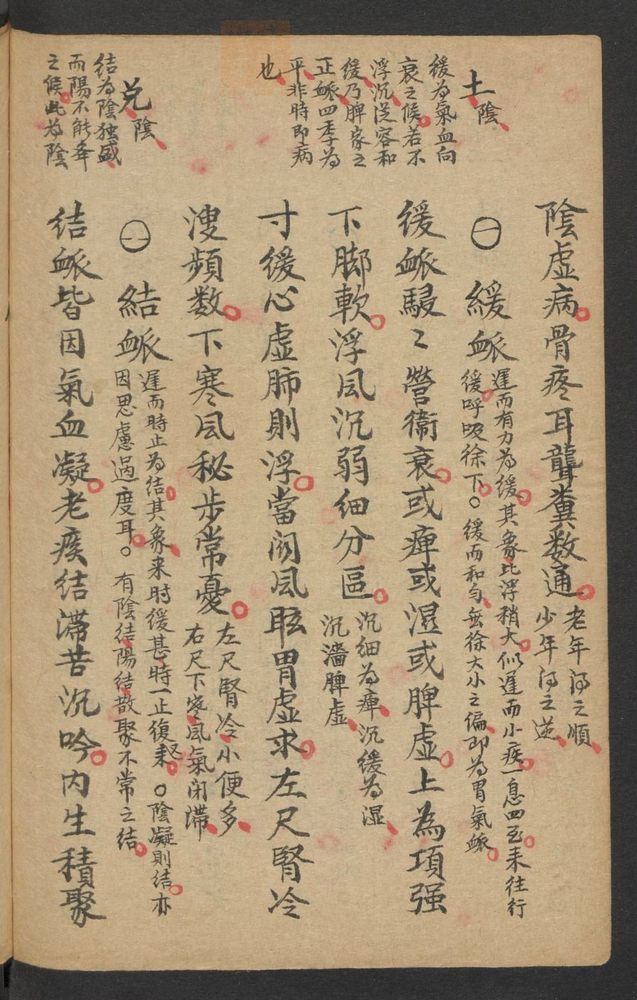 陰虛病骨疼耳聾糞数通
老年得之順
少年得之逆
土陰
緩為氣血向
衰之候若不
浮沉従容和
緩乃脾家之
正䘑四季為
平非時即病
也
〇一 緩䘑
遲而有力為緩其象比浮稍大似遲而小疾一息四至来往行
緩呼吸徐下〇緩而和匀無徐大小之偏即為胃氣䘑
緩䘑騣〻營衞衰或痺或濕或脾虛上為項强
下脚軟浮風沉弱細分區
沉細為痺沉緩為湿
沉濇脾虛
寸緩心虛肺則浮當関風眩胃虛求左尺腎冷
溲頻数下寒風秘步常憂
左尺腎冷小便多
右尺下寒風氣闭滯
兌陰
結為陰独盛
而陽不能䢍
之候此為陰
〇一 結䘑
遲而時止為結其象来時緩甚時一止復来〇陰凝則結亦
因思慮過度耳〇有陰結陽結散聚不常之結
結䘑皆因氣血凝老痰結滯苦沉吟内生積聚